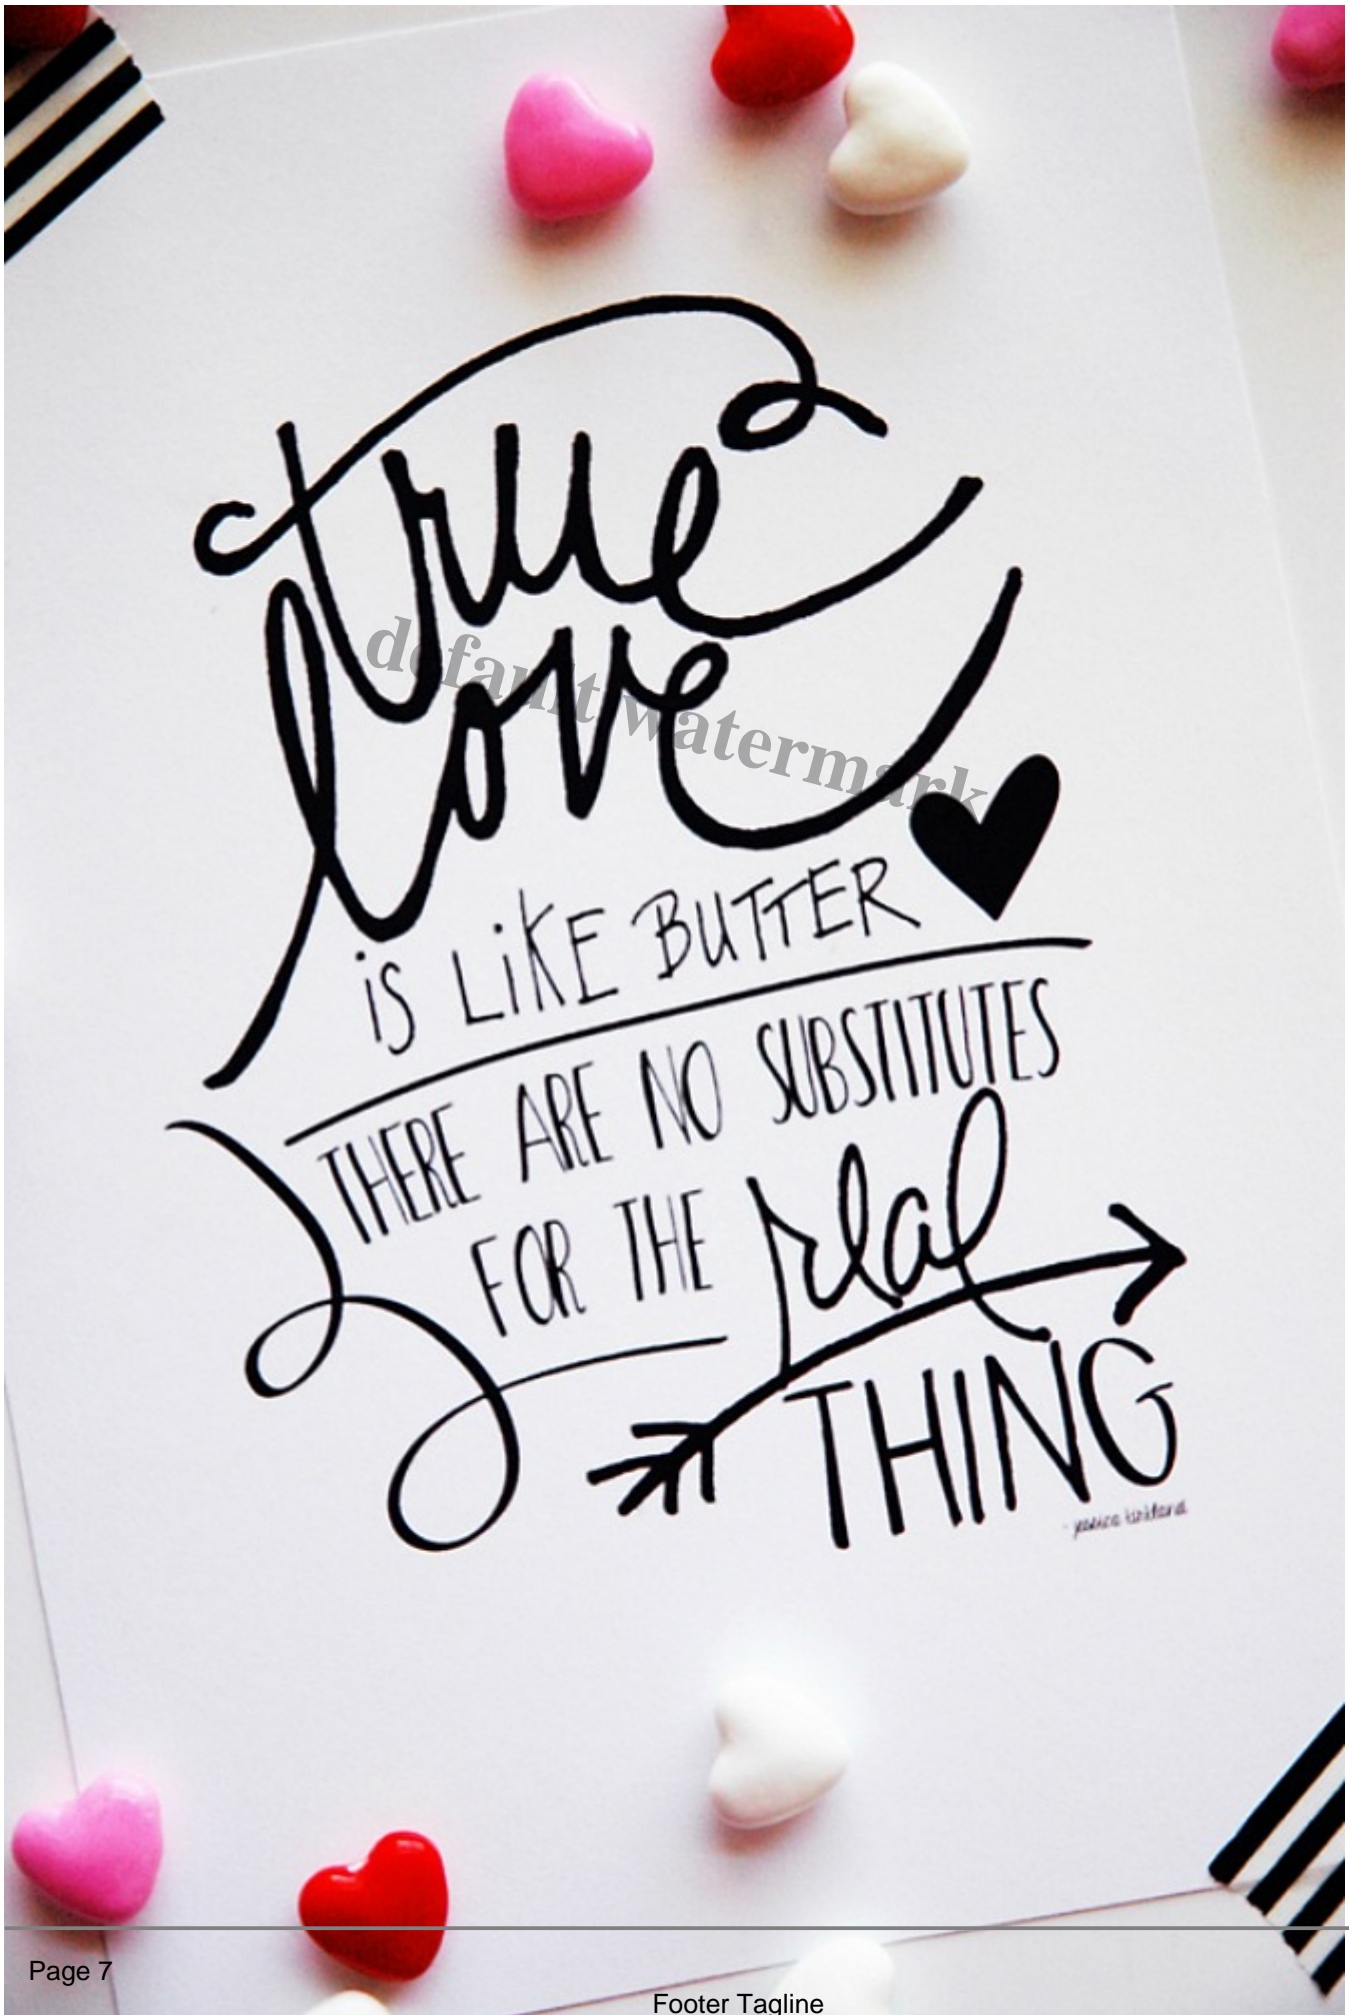 true
love
default watermark
iS LiKE BUTTER
THERE ARE NO SUBSTITUTES
FOR THE real
THING
- jessica kirkland
Page 7
Footer Tagline